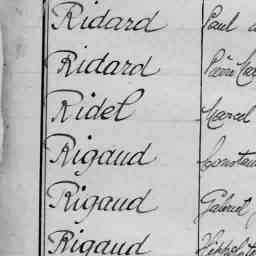 Ridard Paul
Ridard Pierre
Ridel Marcel
Rigaud Constant
Rigaud Gabriel
Rigaud Hippolyte